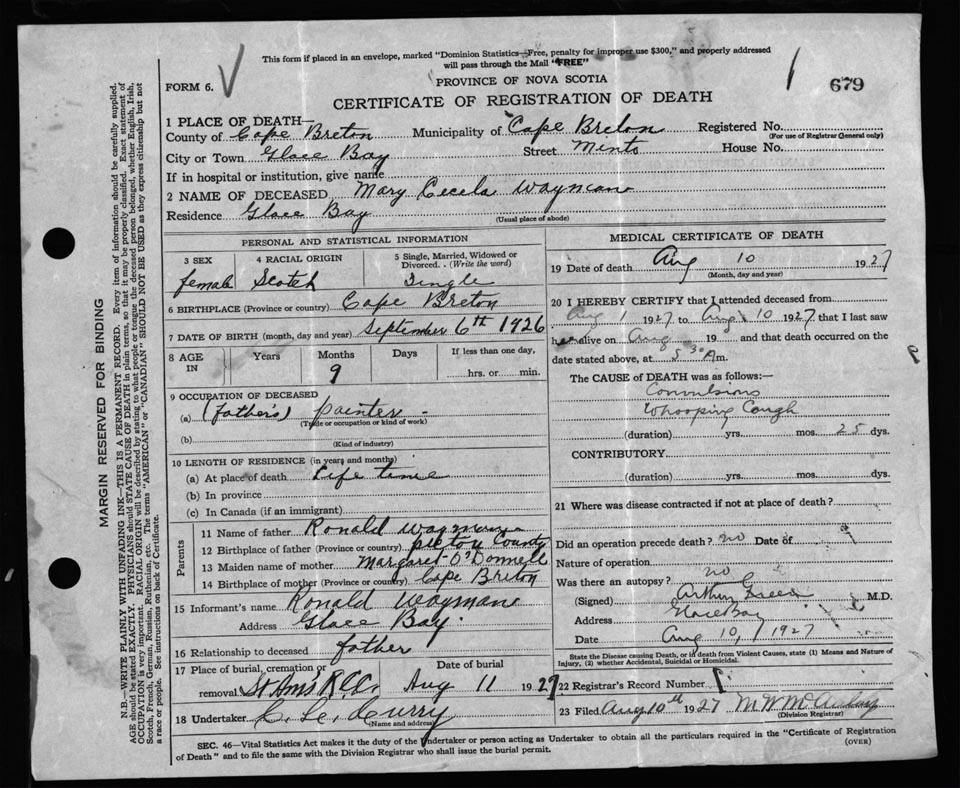 This form if placed in an envelope, marked "Dominion Statistics—Free, penalty for improper use $300," and properly addressed
will pass through the Mail "FREE"
FORM 6.
PROVINCE OF NOVA SCOTIA
679
CERTIFICATE OF REGISTRATION OF DEATH
1 PLACE OF DEATH—
County of Cape Breton Municipality of Cape Breton Registered No.
(For use of Registrar General only)
City or Town Glace Bay Street Minto House No.
If in hospital or institution, give name
2 NAME OF DECEASED Mary Cecela Wayman
Residence Glace Bay
(Usual place of abode)
PERSONAL AND STATISTICAL INFORMATION
3 SEX 4 RACIAL ORIGIN 5 Single, Married, Widowed or
Divorced. . (Write the word)
female Scotch Single
6 BIRTHPLACE (Province or country) Cape Breton
7 DATE OF BIRTH (month, day and year) September 6th 1926
8 AGE IN Years Months Days If less than one day,
9 hrs. or min.
9 OCCUPATION OF DECEASED
(a) (father's) painter -
(Trade or occupation or kind of work)
(b)
(Kind of industry)
10 LENGTH OF RESIDENCE (in years and months)
(a) At place of death Life time
(b) In province
(c) In Canada (if an immigrant)
Parents
11 Name of father Ronald Wayman
12 Birthplace of father (Province or country) Pictou County
13 Maiden name of mother Margaret O'Donnell
14 Birthplace of mother (Province or country) Cape Briton
15 Informant's name Ronald Wayman
Address Glace Bay
16 Relationship to deceased father
17 Place of burial, cremation or Date of burial
removal St Ann's R.C.C. Aug 11 1927
18 Undertaker Curry
(Name and address)
MEDICAL CERTIFICATE OF DEATH
19 Date of death Aug 10 1927
(Month, day and year)
20 I HEREBY CERTIFY that I attended deceased from
Aug 1 1927 to Aug 10 1927 that I last saw
her alive on Aug 19 and that death occurred on the
date stated above, at 5 30 A m.
The CAUSE of DEATH was as follows:—
Convulsions
Whooping Cough
(duration) yrs. mos. 25 dys.
CONTRIBUTORY
(duration) yrs. mos. dys.
21 Where was disease contracted if not at place of death?
Did an operation precede death? no Date of
Nature of operation
Was there an autopsy? no
(Signed) Arthur M.D.
Address Glace Bay
Date Aug 10, 1927
State the Disease causing Death, or in death from Violent Causes, state (1) Means and Nature of
Injury, (2) whether Accidental, Suicidal or Homicidal.
22 Registrar's Record Number
23 Filed Aug 10th 1927
(Division Registrar)
SEC. 46—Vital Statistics Act makes it the duty of the Undertaker or person acting as Undertaker to obtain all the particulars required in the "Certificate of Registration
of Death" and to file the same with the Division Registrar who shall issue the burial permit.
(OVER)
MARGIN RESERVED FOR BINDING
N.B.—WRITE PLAINLY WITH UNFADING INK—THIS IS A PERMANENT RECORD. Every item of information should be carefully supplied.
AGE should be stated EXACTLY. PHYSICIANS should STATE CAUSE OF DEATH in plain terms, so that it may be properly classified. Exact statement of
OCCUPATION is very important. RACIAL ORIGIN will be described by stating to what people or tongue the deceased person belonged, whether English, Irish,
Scotch, French, German, Russian, Ruthenian, etc. The terms "AMERICAN" or "CANADIAN" SHOULD NOT BE USED as they express citizenship but not
a race or people. See instructions on back of Certificate.